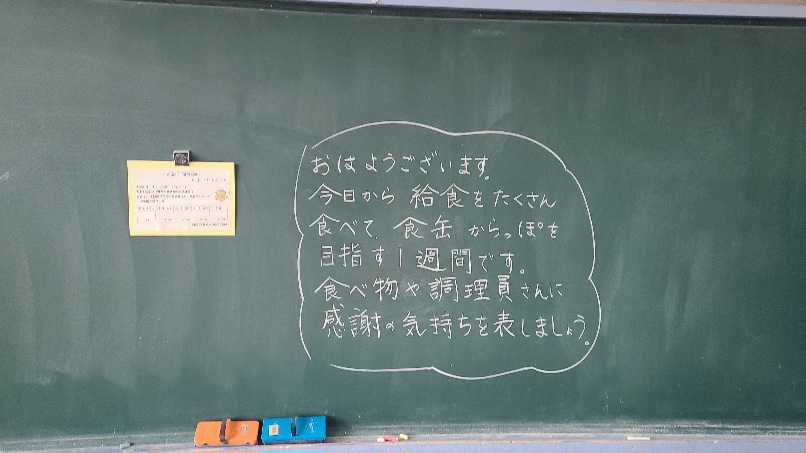 おはようございます。
今日から給食をたくさん
食べて、食缶からっぽを
目指す1週間です。
食べ物や調理員さんに
感謝の気持ちを表しましょう。